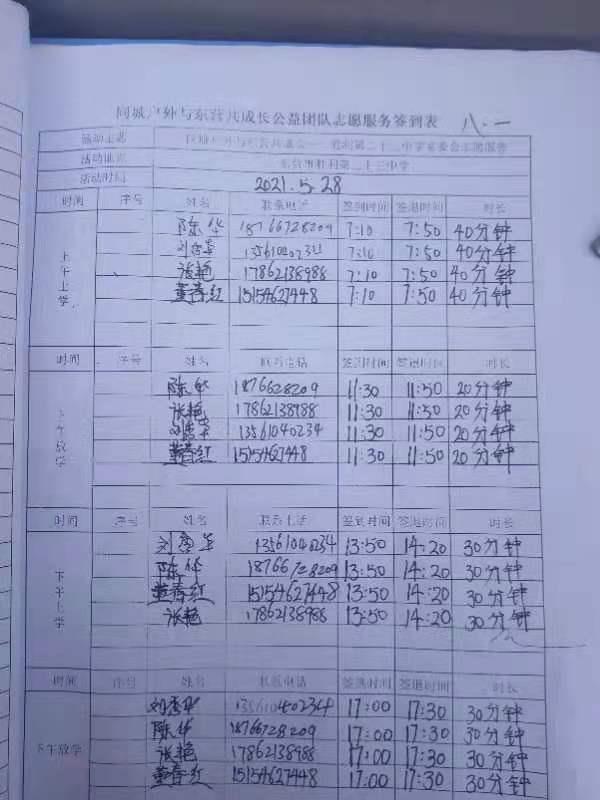 同城户外与东营共成长公益团队志愿服务签到表 八.一
活动主题
活动地点 东营市胜利第二十三中学
活动时间 2021.5.28
时间 序号 姓名 联系电话 签到时间 签退时间 时长
上午上学
陈华 18766728209 7:10 7:50 40分钟
7:10 7:50 40分钟
张艳 17862138988 7:10 7:50 40分钟
董春红 15154627448 7:10 7:50 40分钟
时间 序号 姓名 联系电话 签到时间 签退时间 时长
下午放学
陈华 1876628209 11:30 11:50 20分钟
张艳 17862138988 11:30 11:50 20分钟
13561040234 11:30 11:50 20分钟
董春红 1515462448 11:30 11:50 20分钟
时间 序号 姓名 联系电话 签到时间 签退时间 时长
下午上学
13561040234 13:50 14:20 30分钟
陈华 18766728209 13:50 14:20 30分钟
董春红 15154627448 13:50 14:20 30分钟
张艳 17862138988 13:50 14:20 30分钟
时间 序号 姓名 联系电话 签到时间 签退时间 时长
下午放学
13561040234 17:00 17:30 30分钟
陈华 18766728209 17:00 17:30 30分钟
张艳 17862138988 17:00 17:30 30分钟
董春红 15154627448 17:00 17:30 30分钟